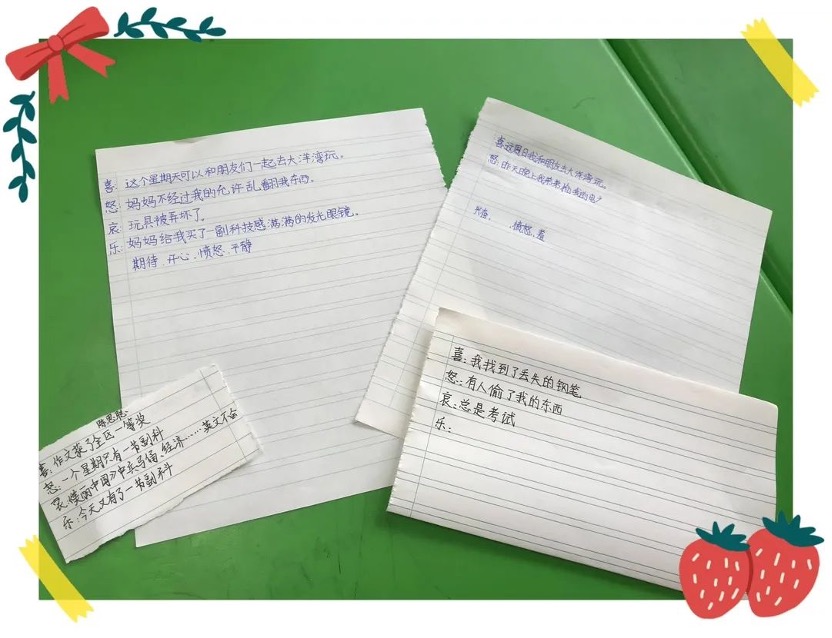 喜：这个星期天可以和朋友们一起去大洋湾玩。
怒：妈妈不经过我的允许乱翻我东西。
哀：玩具被弄坏了。
乐：妈妈给我买了一副科技感满满的发光眼镜。
期待、开心、愤怒、平静
喜：这周日我和朋友去大洋湾玩。
怒：昨天晚上我弟弟抢我的电
愤怒、羞
喜：我找到了丢失的钢笔
怒：有人偷了我的东西
哀：总是考试
乐：
喜：作文获了全区一等奖
怒：一个星期只有一节副科
哀：中 经济……英文不会
乐：今天又有了一节副科